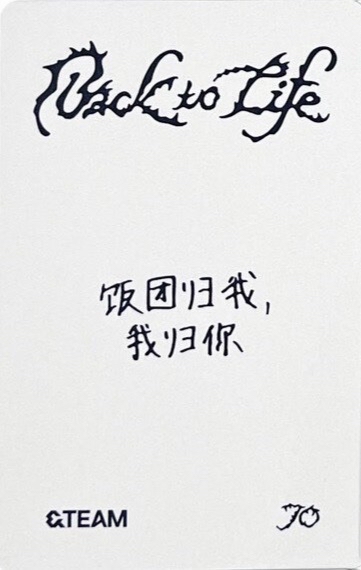 Back to Life
饭团归我,
我归你
&TEAM
JO